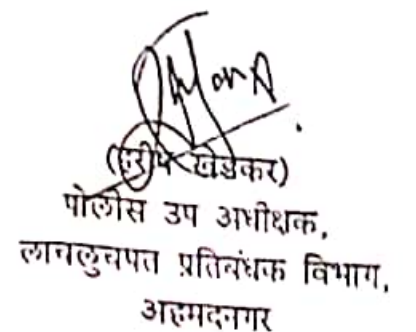 खेडकर)
पोलीस उप अधीक्षक,
लाचलुचपत प्रतिबंधक विभाग,
अहमदनगर